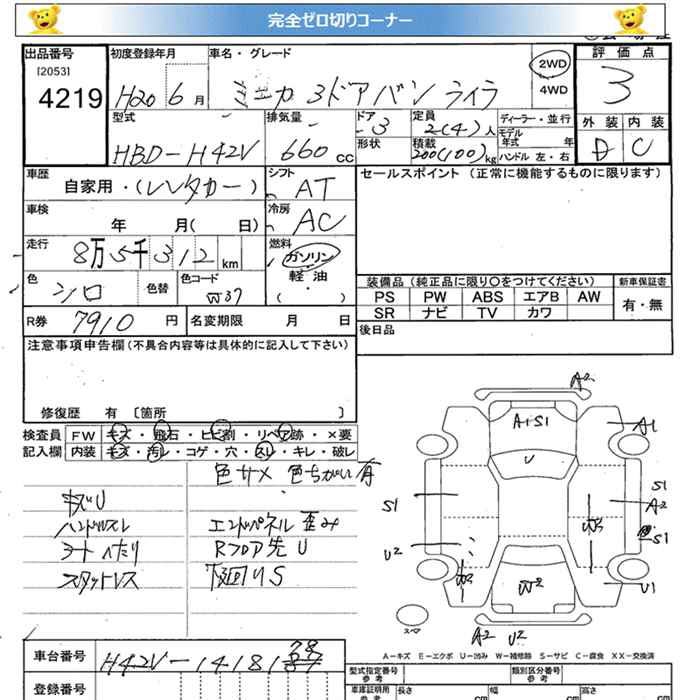 完全ゼロ切りコーナー
出品番号 初度登録年月 車名・グレード 2WD 評価点
[2053]
4219 H20 6月 ミニカ 3ドアバン ライラ 4WD 3
型式 排気量 ドア 3 定員 2(4)人 ディーラー・並行 外装 内装
モデル年式 年
HBD-H42V 660cc 形状 積載 200(100)kg ハンドル 左・右 D C
車歴 シフト セールスポイント (正常に機能するものに限ります)
自家用・(レンタカー) AT
車検 冷房
年 月( 日) AC
走行 燃料
8万5千312km ガソリン
軽油
( ・ )
色 シロ 色替 色コード W37
装備品 (純正品に限り〇をつけてください) 新車保証書
PS PW ABS エアB AW 有・無
SR ナビ TV カワ
R券 7910円 名変期限 月 日 後日品
注意事項申告欄(不具合内容等は具体的に記入して下さい)
修復歴 有 〔箇所 〕
検査員 FW キズ・飛石・ヒビ割・リペア跡・×要
記入欄 内装 キズ・汚レ・コゲ・穴・スレ・キレ・破レ
色サメ 色ちがい有
キズU
ハンドルスレ エンドパネル歪み
シートへたり Rフロア先U
スタットレス 下回りS
A2
A1S1
A1
U
S1
S1
A2
W3
S1
U2
W2
W2
U1
A2 U2
スペア
A-キズ E-エクボ U-凹み W-補修跡 S-サビ C-腐食 XX-交換済
車台番号 H42V-1418128
登録番号
型式指定番号 参考 類別区分番号 参考
車庫証明用 参考 長さ cm 幅 cm 高さ cm